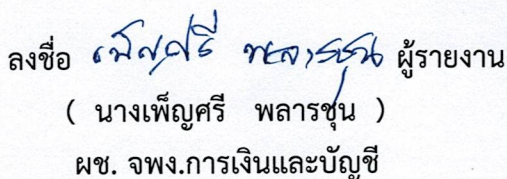 ลงชื่อ เพ็ญศรี พลารชุน ผู้รายงาน
( นางเพ็ญศรี พลารชุน )
ผช. จพง.การเงินและบัญชี